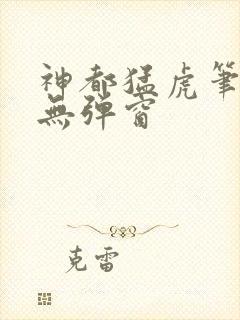 神都猛虎筆
無彈窗
克雷